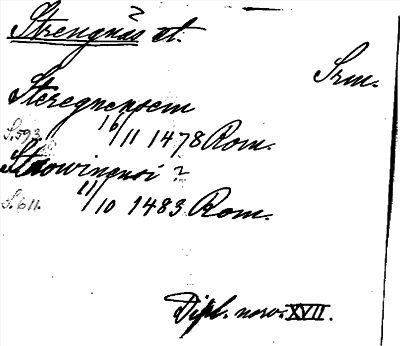 ?
Strengnäs st.
Srm.
Steregnenoem
S. 593. 16/11 1478 Rom.
Strowinensi ?
S. 611. 11/10 1483 Rom.
Dipl. norv. XVII.